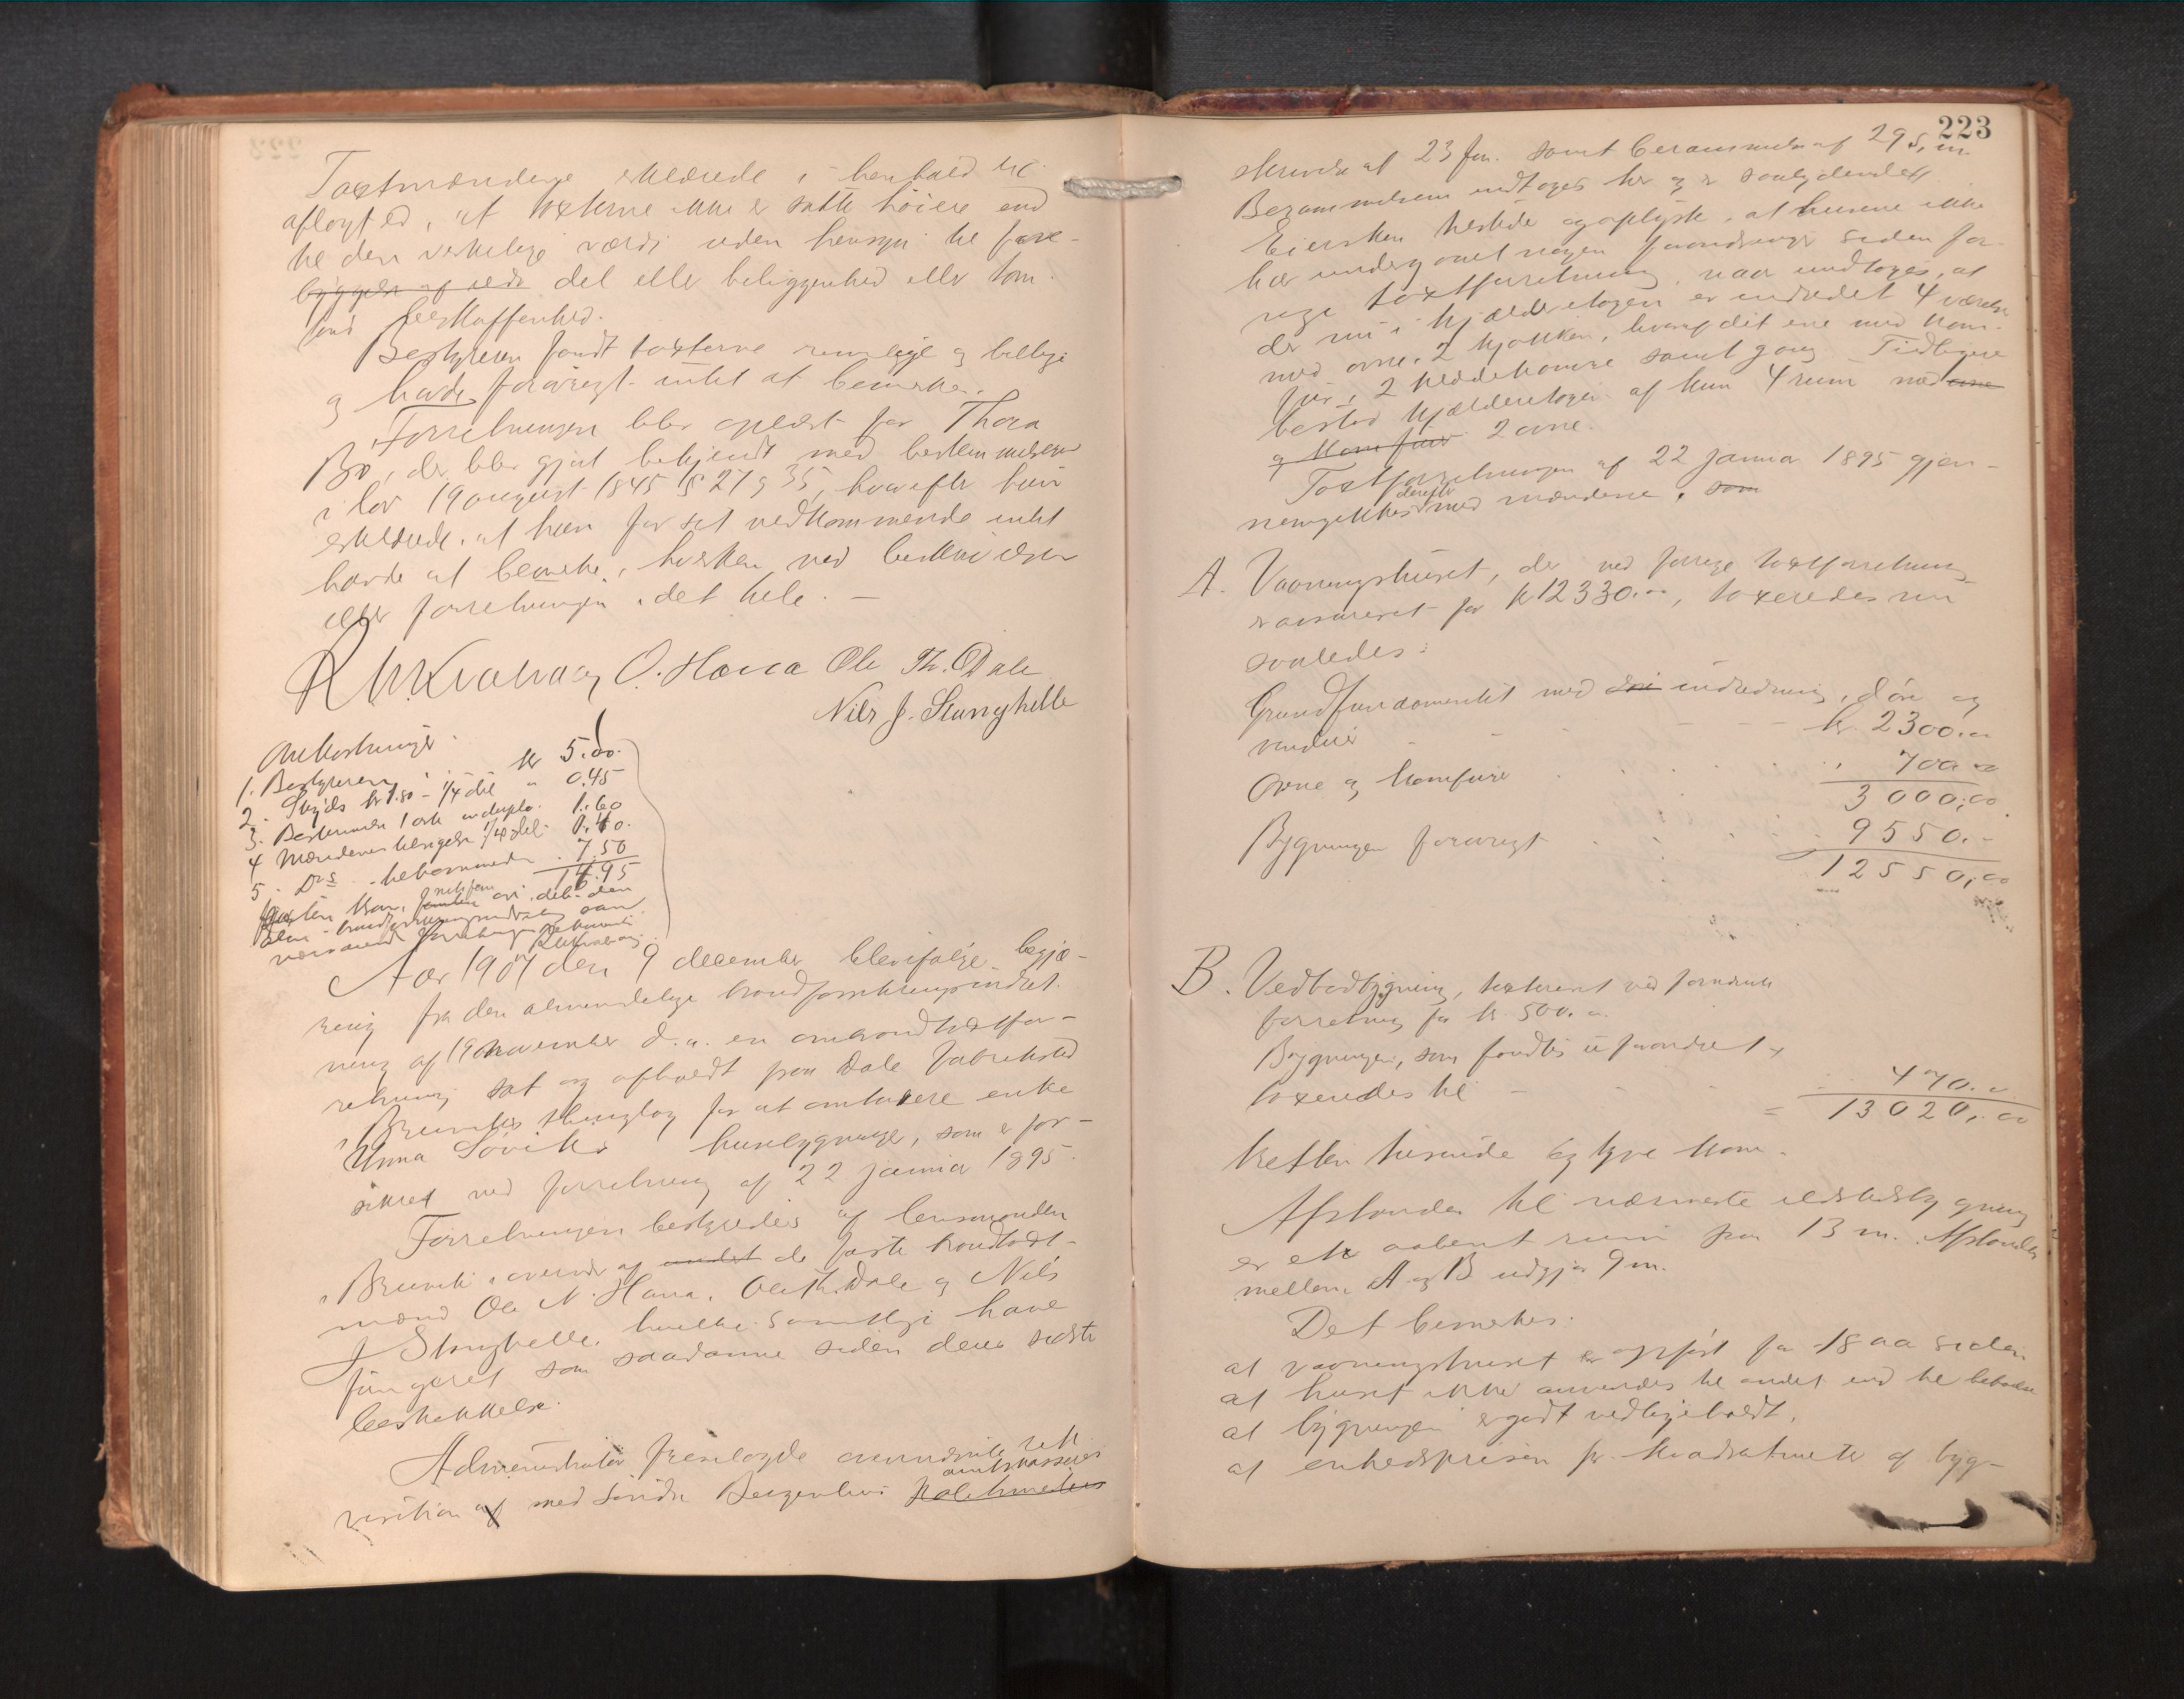 Taxtmændene erklærede i henhold til
aflagt ed, at taxterne ikke er satte høiere end
til den virkelige værdi uden hensyn til fare-
byggede af ilde del eller beliggenhed eller
beskaffenhed.
Bestyreren fandt taxterne rimelige og billige
og havde forøvrigt intet at bemerke.
Forretningen blev oplæst for Thora
Bø, der blev gjort bekjendt med bestemmelserne
i lov 19 august 1845 § 27 og 35, hvorefter hun
erklærede, at hun for sit vedkommende intet
havde at bemerke, hverken ved beskrivelsen
eller forretningen i det hele. —
O. Hana Ole Th. Dale
Nils J. Stanghelle
Omkostninger
1. Bestyreren kr 5.00.
2. Skyds kr 1.80 - 1/4 del " 0.45
3. Beskrivelse 1 ark in duplo. 1.60
4 Mændenes tilsigelse 1/4 del 0.40.
5. Do - betaling 7.50
14.95
Aar 1907 den 9 december blev ifølge begjæ-
ring fra den almindelige brandforsikringsindret-
ning af 19 november d. a. en ombrandtaxtfor-
retning sat og afholdt paa Dale Fabriksted
i Bruviks thinglag for at omtaxere enke
Anna Søviks husebygninger, som er for-
sikret ved forretning af 22 januar 1895.
Forretningen bestyredes af lensmanden
i Bruvik, overvær af andet de faste brandtaxt-
mænd Ole N. Hana, Ole Th. Dale og Nils
J Stanghelle, hvilke samtlige have
fungeret som saadanne siden deres sidste
beskikkelse.
Administrator fremlagde ovennævnte rek-
amtskasseres
visition af med Søndre Bergenhus Politmesters
223
skrivelse af 23 f.m. samt berammelse af 29 s. m.
Berammelsen indtages her og er saalydende
Eiersken tilstede og oplyste, at husene ikke
har undergaaet nogen forandringer siden for-
rige taxtforretning, naar undtages, at
der nu i kjælderetagen er indredet 4 værelser
med ovne, 2 kjøkken, hvoraf det ene med kom-
fur, 2 klædekamre samt gang. Tidligere
bestod kjælderetagen af kun 4 rum med ovne
og komfur 2 ovne.
Taxtforretningen af 22 januar 1895 gjen-
derefter
nemgikkes med mændene, som
A. Vaaningshuset, der ved forrige taxtforretning
er assureret for kr 12330.00, taxeredes nu
saaledes:
Grundfundamentet med den indredning, døre og
vinduer - - - kr. 2300.00
Ovne og komfure . . . . 700 00
3000,00
Bygningen forøvrigt . . . 9550.-
12550,00
B. Vedbodbygning, taxeret ved forrige
forretning for kr. 500.00.
Bygningen, som fandtes uforandret,
taxeredes til - - - 470.00
= 13020,00
tretten tusinde og tyve kron.
Afstanden til nærmeste ildstedsbygning
er et aabent rum paa 13 m. Afstanden
mellem A og B udgjør 9 m.
Det bemerkes:
at vaaningshuset er opført for 18 aar siden
at huset ikke anvendes til andet end til beboelse
at bygningen er godt vedligeholdt.
at enhedsprisen pr. kvadratmeter af byg-